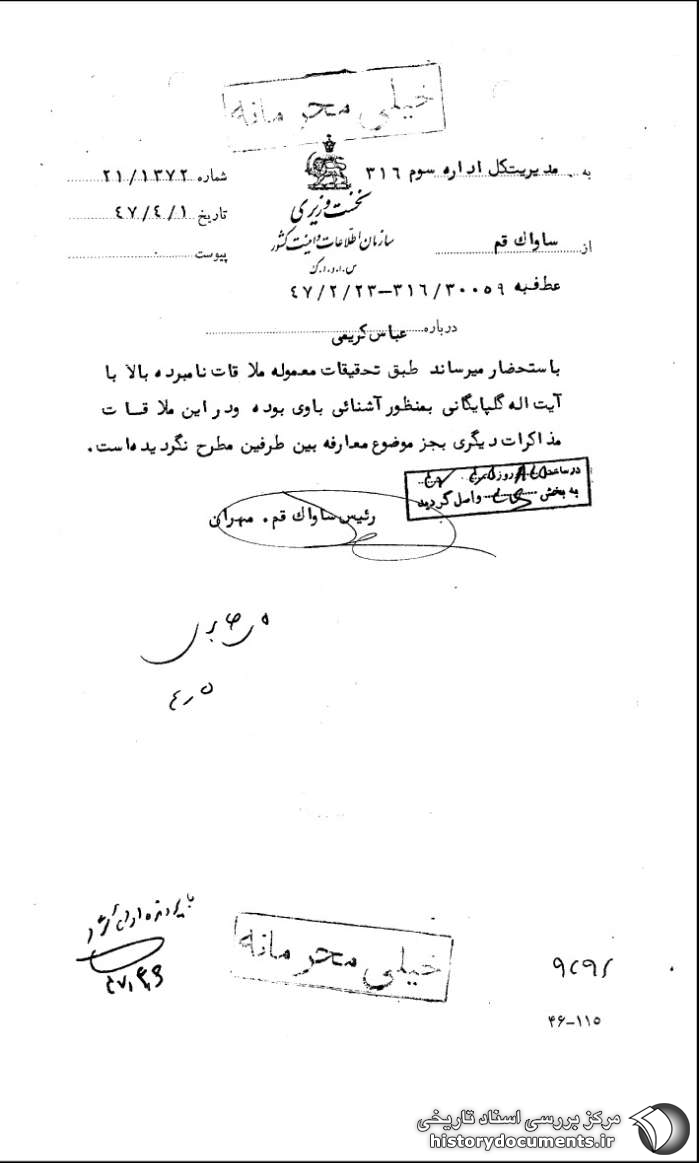 خیلی محرمانه
به مدیریتکل اداره سوم ۳۱۶
شماره ۲۱/۱۳۷۲
نخست وزیری
تاریخ ۴۷/۴/۱
از ساواك قم
سازمان اطلاعات و امنیت کشور
پیوست
س.ا.و.ا.ک
عطف به ۳۱۶/۳۰۰۵۹-۴۷/۲/۲۳
درباره عباس کریمی
باستحضار میرساند طبق تحقیقات معموله ملاقات نامبرده بالا با
آیت اله گلپایگانی بمنظور آشنائی باوی بوده ودر این ملاقات
مذاکرات دیگری بجز موضوع معارفه بین طرفین مطرح نگردیده است.
در ساعت روز
به بخش واصل گردید
رئیس ساواك قم. مهران
خیلی محرمانه
۴۶-۱۱۵
مرکز بررسی اسناد تاریخی
historydocuments.ir